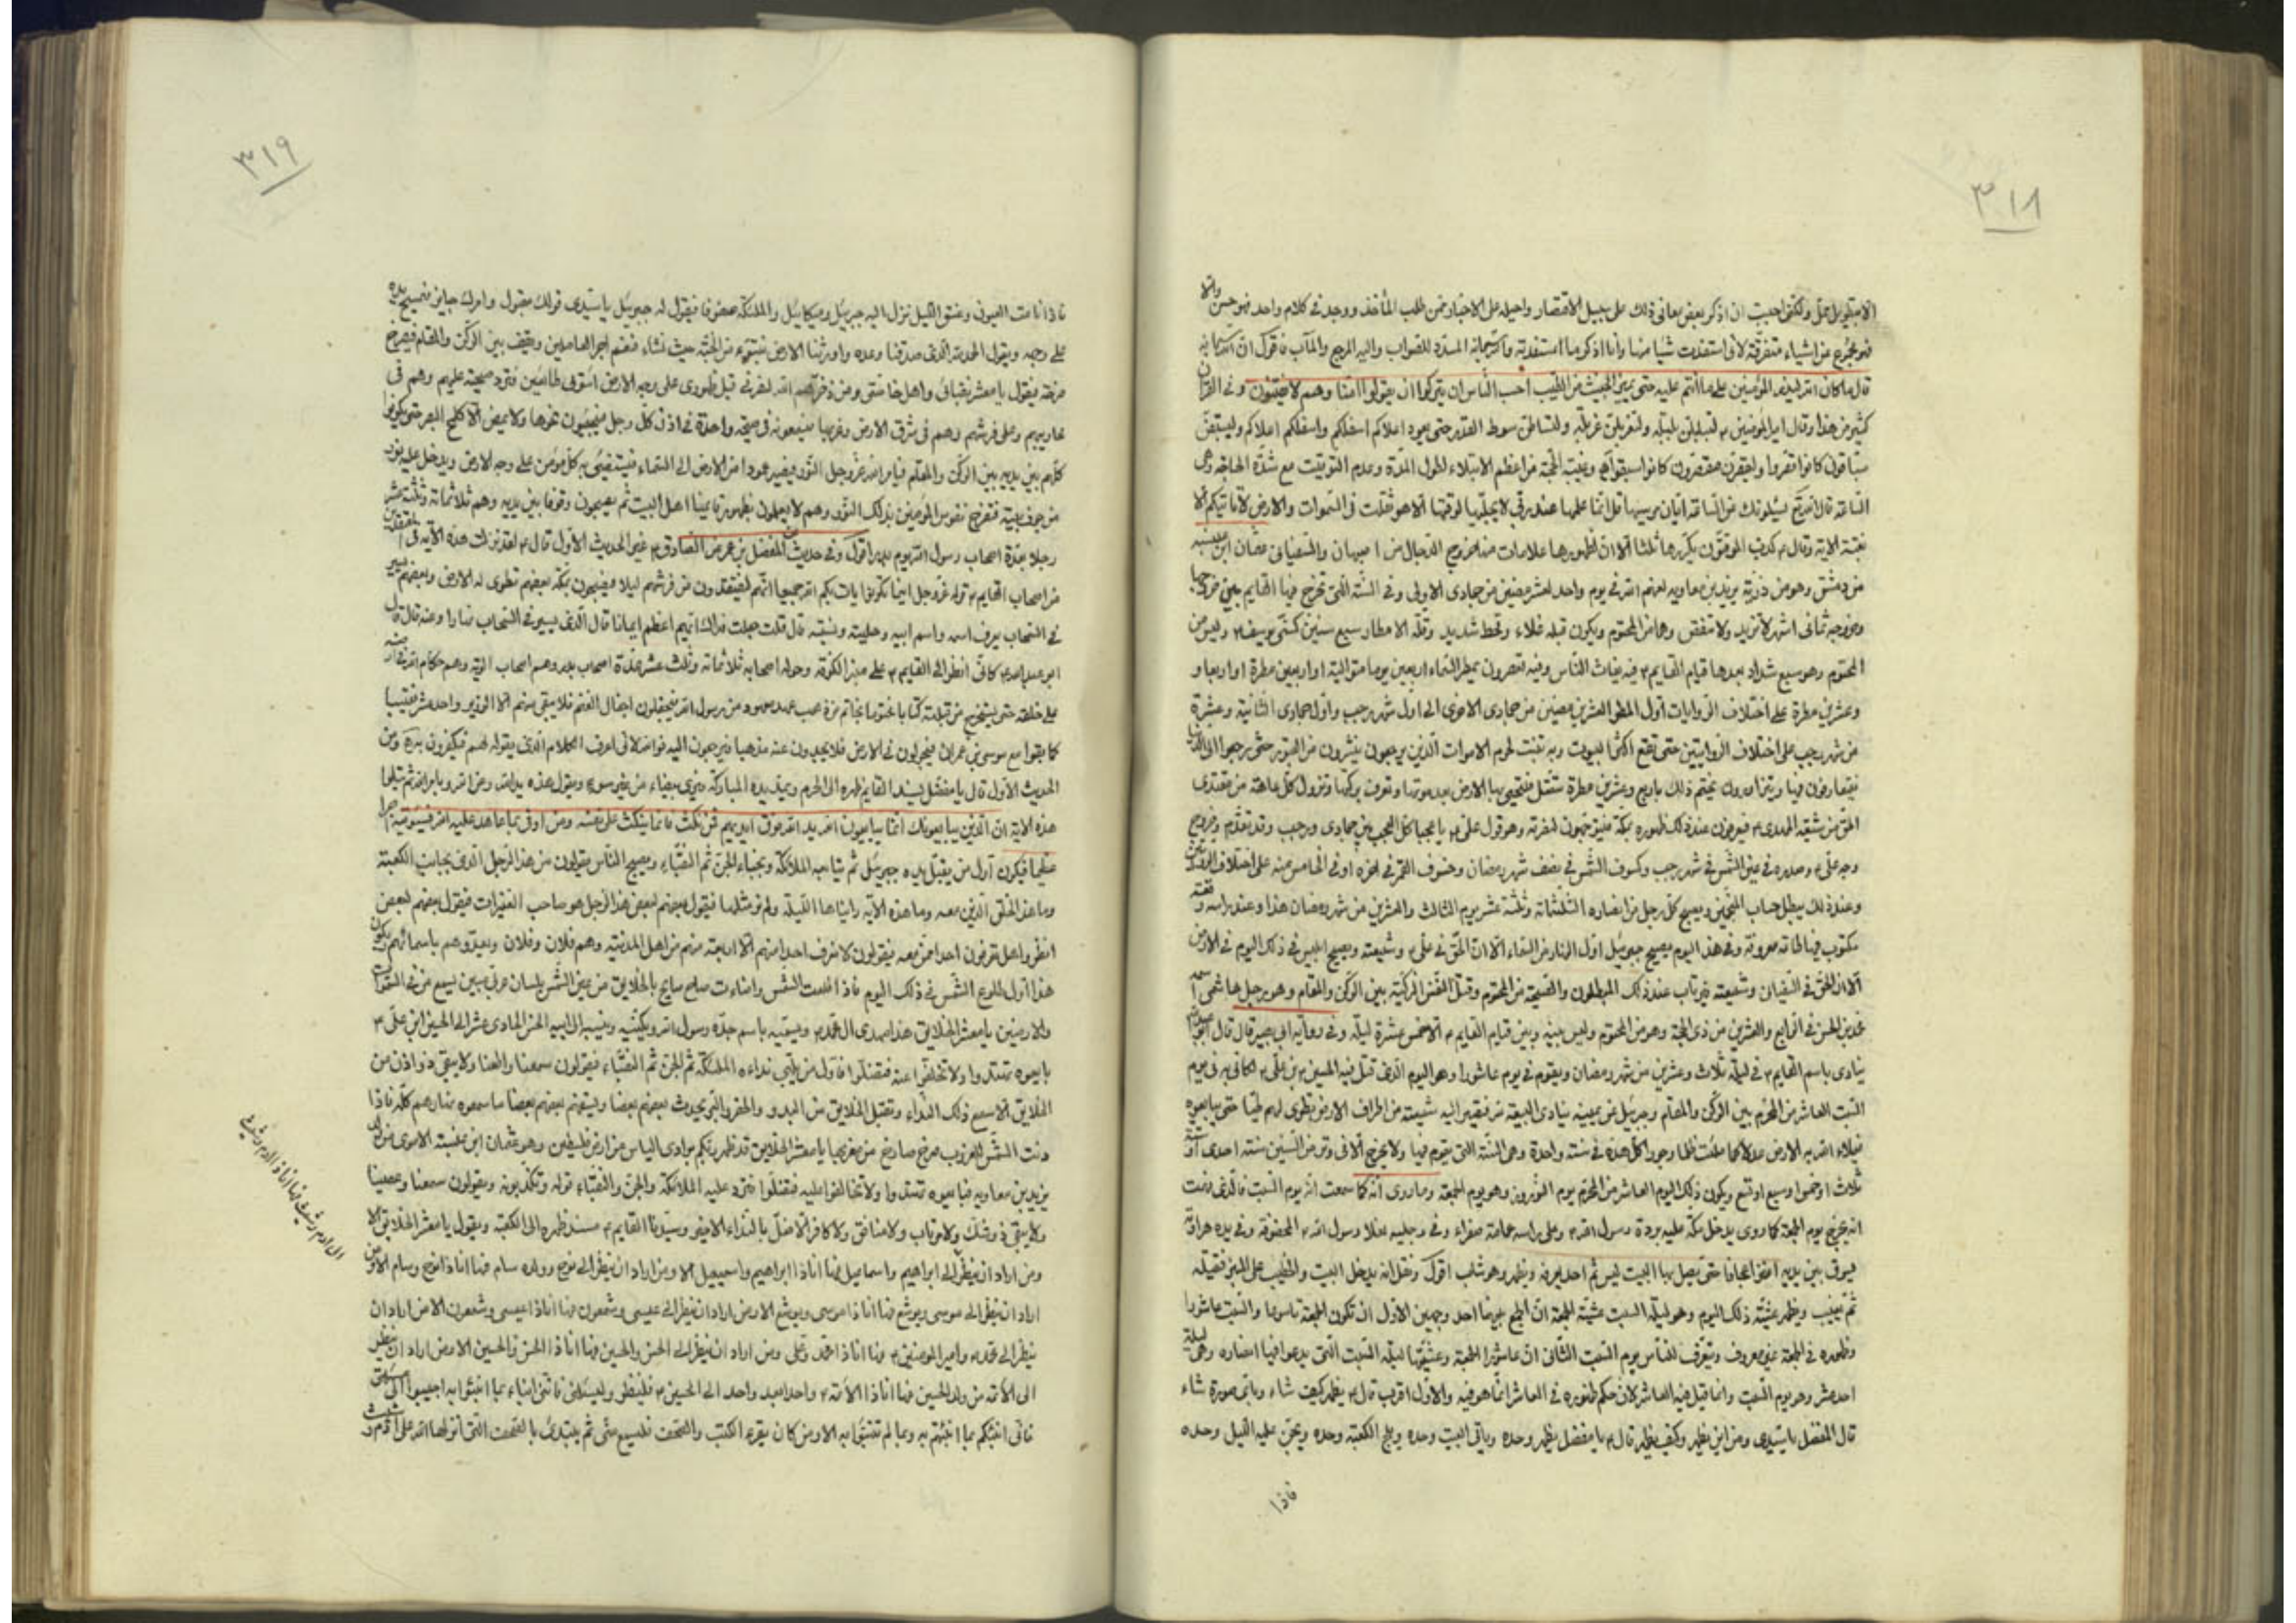 ٣١٨
الا بتطويل ممل ولكنى احببت ان اذكر بعض معانى ذلك على سبيل الاقتصار واحيله على الاخبار فمن طلب المأخذ ووجد فى كلام واحد فهو حسن والا
فهو مخرج من اشياء متفرقة لانى استفدت شيئا منها وأنا اذكر ما استفدته والله سبحانه المسدد للصواب واليه المرجع والمآب فاقول ان الله سبحانه
قال ما كان الله ليذر المؤمنين على ما أنتم عليه حتى يميز الخبيث من الطيب أحسب الناس ان يتركوا ان يقولوا امنا وهم لا يفتنون وفى القرآن
كثير من هذا وقال امير المؤمنين ع لتبلبلن بلبلة ولتغربلن غربلة ولتساطن سوط القدر حتى يعود اعلاكم اسفلكم واسفلكم اعلاكم وليسبقن
سباقون كانوا قصروا وليقصرن مقصرون كانوا سبقوا وغيبة الحجة من اعظم الابتلاء لطول المدة وعدم التوقيت مع شدة الحاجة وهى
الساعة قال الله يسئلونك عن الساعة ايان مرسيها قل انما علمها عند ربى لا يجليها لوقتها الا هو ثقلت فى السموات والارض لا تأتيكم الا
بغتة الاية وقال ع كذب الموقتون يكررها ثلثا الا ان لظهورها علامات منها خروج الدجال من اصبهان والسفيانى عثمان ابن عنبسه
من دمشق وهو من ذرية يزيد بن معاويه لعنهم الله فى يوم واحد لعشر مضين من جمادى الاولى وفى السنة التى تخرج فيها القايم بين خروجها
وخروجه ثمانى اشهر لا تزيد ولا تنقص وهما من المحتوم ويكون قبله غلاء وقحط شديد وقلة الامطار سبع سنين كسنى يوسف ع وليس من
المحتوم وهو سبع شداد بعدها قيام القايم ع فيه يغاث الناس وفيه تعصرون يمطر السماء اربعين يوما متوالية او اربعين مطرة او اربعا و
وعشرين مطرة على اختلاف الروايات أول المطر العشرين مضين من جمادى الاخرى الى اول شهر رجب وأول جمادى الثانية وعشرة
من شهر رجب على اختلاف الروايتين حتى تقع اكثر البيوت وبه تنبت لحوم الاموات الذين يرجعون ينشرون من القبور حتى يرجعوا الى الدنيا
فيتعارفون فيها ويتزاورون يختم ذلك باربع وعشرين مطرة تتصل فتحيى بها الارض بعد موتها وتعرف بركتها وتزول كل عاهة من معتقدى
الحق من شيعة المهدى ع فيعرفون عند ذلك ظهوره بمكة فيتوجهون لنصرته وهو قول على ع يا عجبا كل العجب بين جمادى ورجب وقد تقدم وخروج
وجه على ع وصدره فى عين الشمس فى شهر رجب وكسوف الشمس فى نصف شهر رمضان وخسوف القمر فى اخره او فى الخامس منه على اختلاف الروايات
وعند ذلك يبطل حساب المنجمين ويصبح كل رجل من انصاره الثلثمائة وثلثة عشر يوم الثالث والعشرين من شهر رمضان هذا وعند راسه رقعة
مكتوب فيها طاعة معروفة وفى هذا اليوم يصيح جبرئيل اول النهار من السماء الا ان الحق فى على ع وشيعته ويصيح ابليس فى ذلك اليوم فى الارض
ألا ان الحق فى السفيان وشيعته فيرتاب عند ذلك المبطلون والصيحة من المحتوم وقتل النفس الزكية بين الركن والمقام وهو رجل هاشمى اسمه
محمد بن الحسن فى الرابع والعشرين من ذى الحجة وهو من المحتوم وليس بينه وبين قيام القايم ع الا خمس عشرة ليلة وفى رواية ابى بصير قال قال ابو عبدالله
ينادى باسم القايم ع فى ليلة ثلاث وعشرين من شهر رمضان ويقوم فى يوم عاشورا وهو اليوم الذى قتل فيه الحسين ع بن على ع لكانى به فى يوم
السبت العاشر من المحرم بين الركن والمقام وجبرئيل عن يمينه ينادى البيعة لله فيصير اليه شيعته من اطراف الارض تطوى لهم طيا حتى يبايعوه
فيملاء الله به الارض عدلا كما ملئت ظلما وجورا كل هذه فى سنة واحدة وهى السنة التى يقوم فيها ولا يخرج الا فى وتر من السنين سنة احدى او
ثلاث او خمس او سبع او تسع ويكون ذلك اليوم العاشر من المحرم يوم النيروز وهو يوم الجمعة وما روى انه كما سمعت انه يوم السبت فالذى فهمت
انه يخرج يوم الجمعة كما روى يدخل مكة عليه بردة رسول الله ص وعلى راسه عمامة صفراء وفى رجليه نعلا رسول الله ص المخصوفة وفى يده هراوة
يسوق بين يديه اعنزا عجافا حتى يصل بها البيت ليس ثم احد يعرفه ويظهر وهو شاب اقول ونقل انه يدخل البيت والخطيب على المنبر فيقتله
ثم يغيب ويظهر عشية ذلك اليوم وهو ليلة السبت عشية الجمعة ان الجمع بينهما احد وجهين الاول ان تكون الجمعة تاسوعا والسبت عاشورا
وظهوره فى الجمعة غير معروف ويتعرف للناس يوم السبت الثانى ان عاشورا الجمعة وعشيتها ليلة السبت التى يدعو فيها انصاره وهى ليلة
احد عشر وهو يوم السبت وانما قيل فيه العاشر لان حكم ظهوره فى العاشر انما هو فيه والاول اقرب قال ع يظهر كيف شاء وباى صورة شاء
قال المفضل يا سيدى ومن اين يظهر وكيف يظهر قال ع يا مفضل يظهر وحده وياتى البيت وحده ويلج الكعبة وحده ويجن عليه الليل وحده
فاذا
٣١٩
فاذا نامت العيون وغسق الليل نزل اليه جبرئيل وميكائيل والملئكة صفوفا فيقول له جبرئيل يا سيدى قولك مقبول وامرك جايز فيمسح يده
على وجهه ويقول الحمد لله الذى صدقنا وعده واورثنا الارض نتبوء من الجنة حيث نشاء فنعم اجر العاملين ويقف بين الركن والمقام فيصرخ
صرخة فيقول يا معشر نقبائى واهل خاصتى ومن ذخرهم الله لنصرتى قبل ظهورى على وجه الارض ائتونى طائعين فترد صيحته عليهم وهم فى
محاريبهم وعلى فرشهم وهم فى شرق الارض وغربها فيسمعونه فى صيحة واحدة فى اذن كل رجل فيجيئون نحوها ولا يمضى الا كلمح البصر حتى يكونوا
كلهم بين يديه بين الركن والمقام فيامر الله عز وجل النور فيصير عمودا من الارض الى السماء فيستضيئ به كل مؤمن على وجه الارض ويدخل عليه نور
من جوف بيته فتفرح نفوس المؤمنين بذلك النور وهم لا يعلمون بظهور قايمنا اهل البيت ثم يصبحون وقوفا بين يديه وهم ثلاثمائة وثلثة عشر
رجلا بعدة اصحاب رسول الله يوم بدر اقول وفى حديث المفضل بن عمر عن الصادق ع غير الحديث الأول قال ع لقد نزلت هذه الآية فى المفتقدين
من اصحاب القايم ع قوله عز وجل اينما تكونوا يأت بكم الله جميعا انهم ليفتقدون من فرشهم ليلا فيصبحون بمكة بعضهم تطوى له الارض وبعضهم يسير
فى السحاب يعرف اسمه واسم ابيه وحليته ونسبه قال قلت جعلت فداك ايهم اعظم ايمانا قال الذى يسير فى السحاب نهارا وعنه قال قال
ابو عبد الله ع كانى انظر الى القايم ع على منبر الكوفة وحوله اصحابه ثلاثمائة وثلث عشر عدة اصحاب بدر وهم اصحاب الالوية وهم حكام الله فى ارضه
على خلقه حتى يستخرج من قبائه كتابا مختوما بخاتم من ذهب عهد معهود من رسول الله فيجفلون اجفال الغنم فلا يبقى منهم الا الوزير واحد عشر نقيبا
كما بقوا مع موسى بن عمران فيجولون فى الارض فلا يجدون عنه مذهبا فيرجعون اليه فوالله انى لاعرف الكلام الذى يقوله لهم فيكفرون به وفى
الحديث الأول قال يا مفضل يسند القايم ظهره الى الحرم ويمد يده المباركة فترى بيضاء من غير سوء ويقول هذه يد الله ومن الله وبامر الله ثم يتلوا
هذه الاية ان الذين يبايعونك انما يبايعون الله يد الله فوق ايديهم فمن نكث فانما ينكث على نفسه ومن اوفى بما عاهد عليه الله فسيؤتيه اجرا
عظيما فيكون أول من يقبل يده جبرئيل ثم تبايعه الملائكة ونجباء الجن ثم النقباء ويصبح الناس يقولون من هذا الرجل الذى بجانب الكعبة
وما هذا الخلق الذين معه وما هذه الآية رايناها الليلة ولم نر مثلها فيقول بعضهم لبعض هذا الرجل هو صاحب العنيزات فيقول بعضهم لبعض
انظروا هل تعرفون احدا ممن معه فيقولون لا نعرف احدا منهم الا اربعة منهم من اهل المدينة وهم فلان وفلان ويعدوهم باسمائهم ويكون
هذا أول طلوع الشمس فى ذلك اليوم فاذا طلعت الشمس واضاءت صاح صايح بالخلايق من عين الشمس بلسان عربى مبين يسمع من فى السموات
والارضين يا معشر الخلايق هذا مهدى ال محمد ع ويسميه باسم جده رسول الله ويكنيه وينسبه الى ابيه الحسن الحادى عشر الى الحسين ابن على ع
بايعوه تهتدوا ولا تخلفوا عنه فتضلوا فاول من يلبى نداءه الملئكة ثم الجن ثم النقباء فيقولون سمعنا واطعنا ولا يبقى ذو اذن من
الخلايق الا سمع ذلك النداء وتقبل الخلايق من البدو والحضر والبحر يحدث بعضهم بعضا ويستفهم بعضهم بعضا ما سمعوه نهارهم كله فاذا
دنت الشمس للغروب صرخ صارخ من مغربها يا معشر الخلايق قد ظهر ربكم بوادى اليابس من ارض فلسطين وهو عثمان ابن عنبسة الاموى من ولد
يزيد بن معاويه فبايعوه تهتدوا ولا تخالفوا عليه فتضلوا فترد عليه الملائكة والجن والنقباء قوله وتكذبونه ويقولون سمعنا وعصينا
ولا يبقى ذو شك ولا مرتاب ولا منافق ولا كافر الا ضل بالنداء الاخير وسيدنا القايم ع مسند ظهره الى الكعبة ويقول يا معشر الخلايق الا
ومن اراد ان ينظر الى ابراهيم واسماعيل فها انا ذا ابراهيم واسمعيل الا ومن اراد ان ينظر الى نوح وولده سام فها انا ذا نوح وسام الا ومن
اراد ان ينظر الى موسى ويوشع فها انا ذا موسى ويوشع الا ومن اراد ان ينظر الى عيسى وشمعون فها انا ذا عيسى وشمعون الا من اراد ان
ينظر الى محمد ص وامير المومنين ع فها انا ذا محمد وعلى ومن اراد ان ينظر الى الحسن والحسين فها انا ذا الحسن والحسين الا ومن اراد ان ينظر
الى الائمة من ولد الحسين فها انا ذا الائمة ع واحدا بعد واحد الى الحسين ع فلينظر وليسئلنى فانى انباء بما انبئوا به اجيبوا الى مسئلتى
فانى انبئكم بما انبئتم به وبما لم تنبئوا به الا ومن كان يقرء الكتب والصحف فليسمع منى ثم يبتدئ بالصحف التى أنزلها الله على ادم وشيث
ال ادم وشيث فها انا ذا ادم وشيث